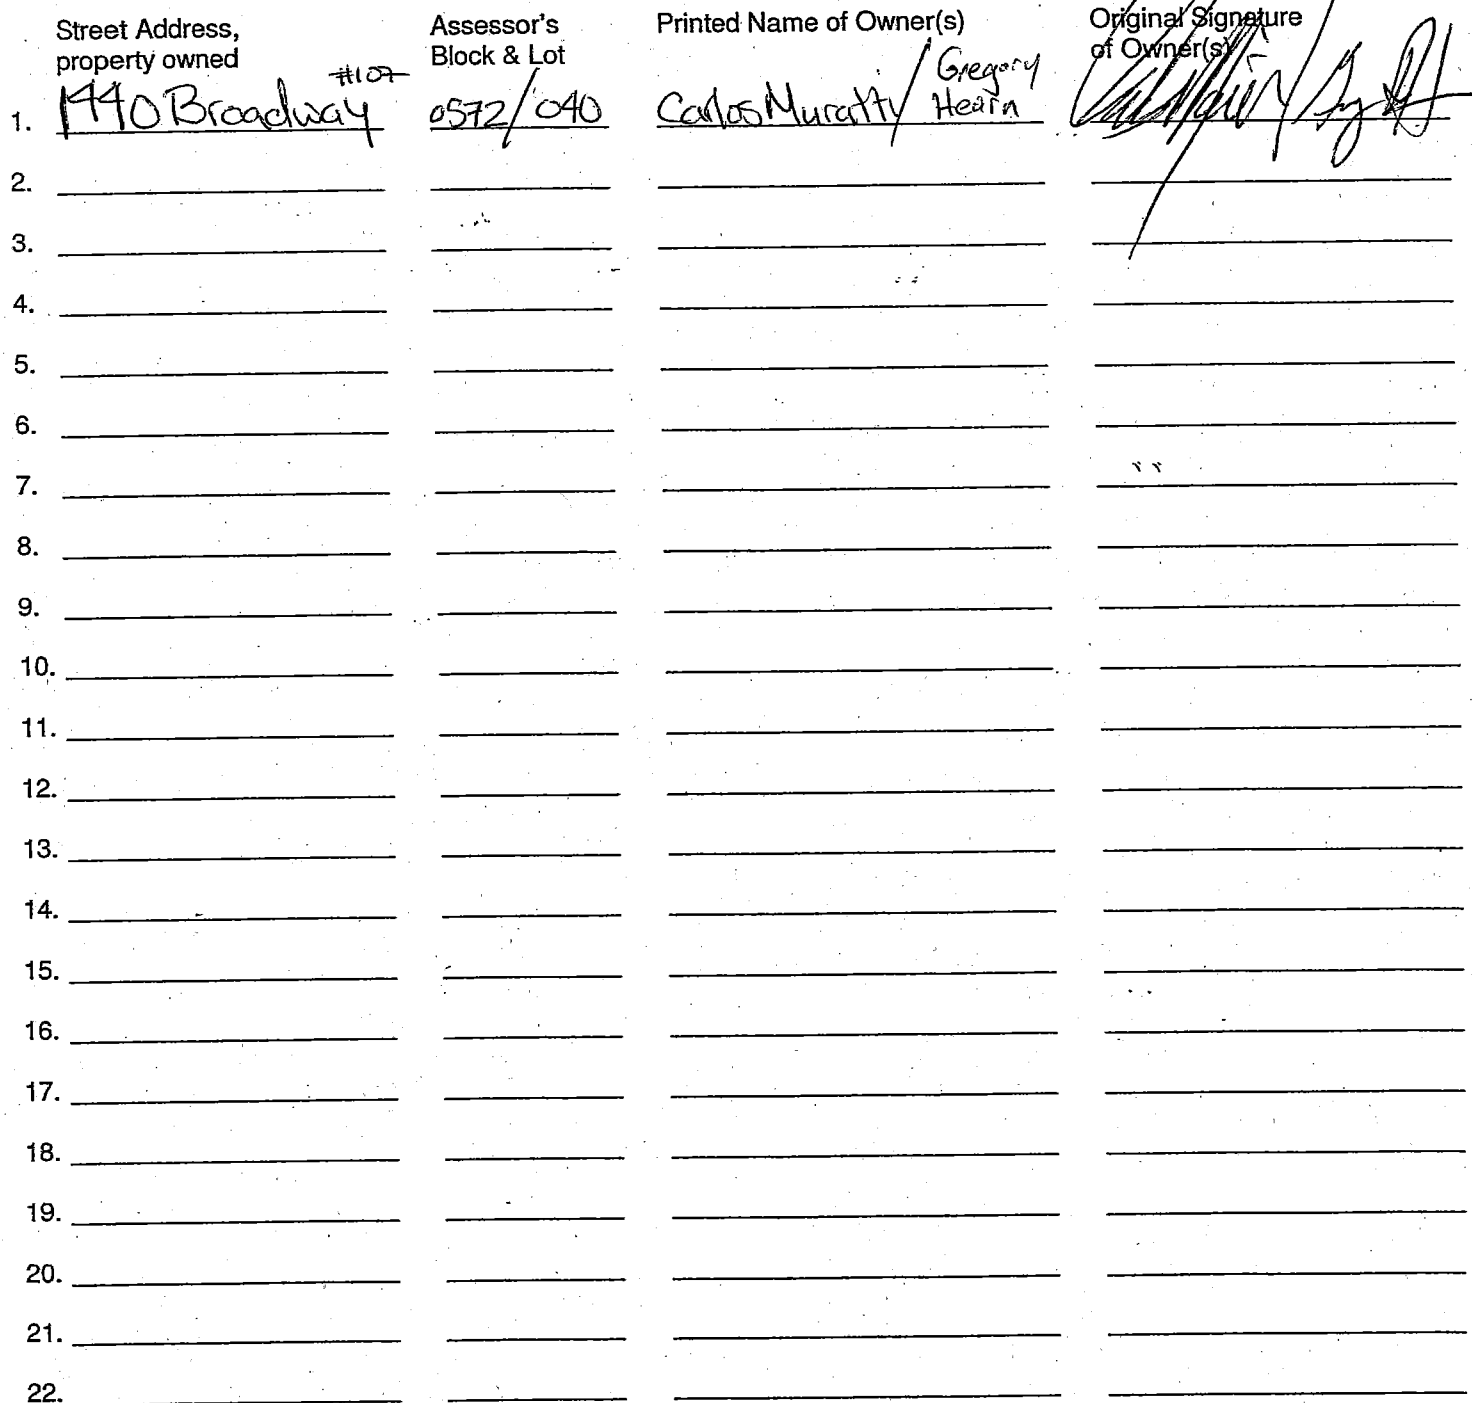 Street Address, property owned
Assessor's Block & Lot
Printed Name of Owner(s)
Original Signature of Owner(s)
1. 1440 Broadway #107 0572/040 Carlos Muratti / Gregory Hearn
2.
3.
4.
5.
6.
7.
8.
9.
10.
11.
12.
13.
14.
15.
16.
17.
18.
19.
20.
21.
22.